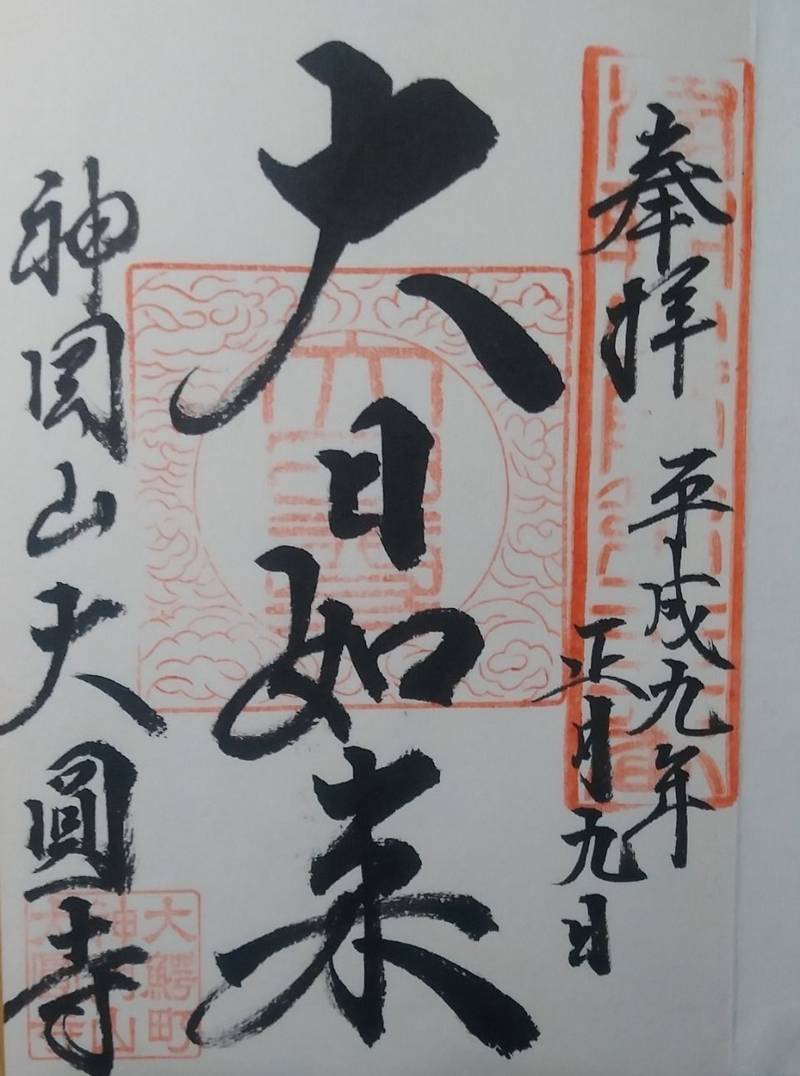 奉拝
平成九年
正月九日
大日如来
神岡山大圓寺
大鰐町
神岡山
大圓寺